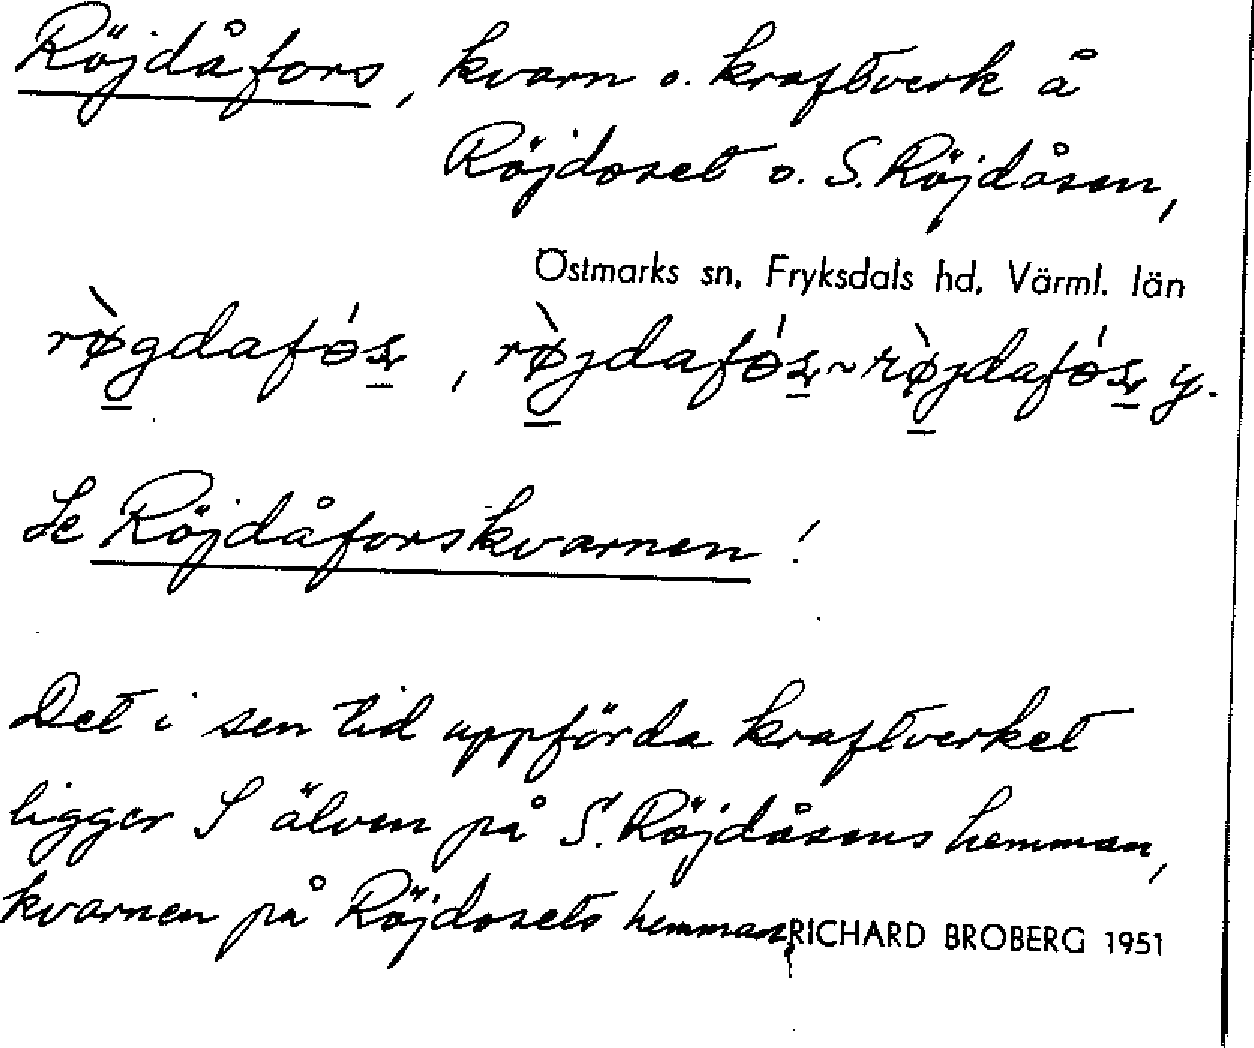 Röjdåfors, kvarn o. kraftverk å
Röjdoset o. S. Röjdåsen,
Östmarks sn, Fryksdals hd, Värml. län
rø̀gdafɵ́s, rø̀jdafɵ́s ~ rø̀jdafɵ́s y.
Se Röjdåforskvarnen!
Det i sen tid uppförda kraftverket
ligger S älven på S. Röjdåsens hemman,
kvarnen på Röjdosets hemman,
RICHARD BROBERG 1951